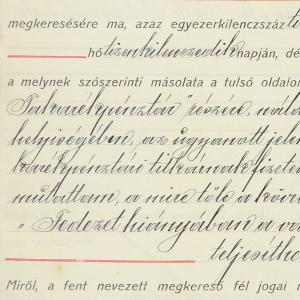 megkeresésére ma, azaz egyezerkilenczszáz
hó tizenkilenczedik napján, dé
a melynek szószerinti másolata a tulsó oldalon
Takarékpénztár" részére, nála
helyiségében, az ugyanott jelen
karékpénztári titkárnak fizetés
mutattam, a mire tőle a köve
"Fedezet hiányában a vá
teljesíthe
Miről, a fent nevezett megkereső fél jogai